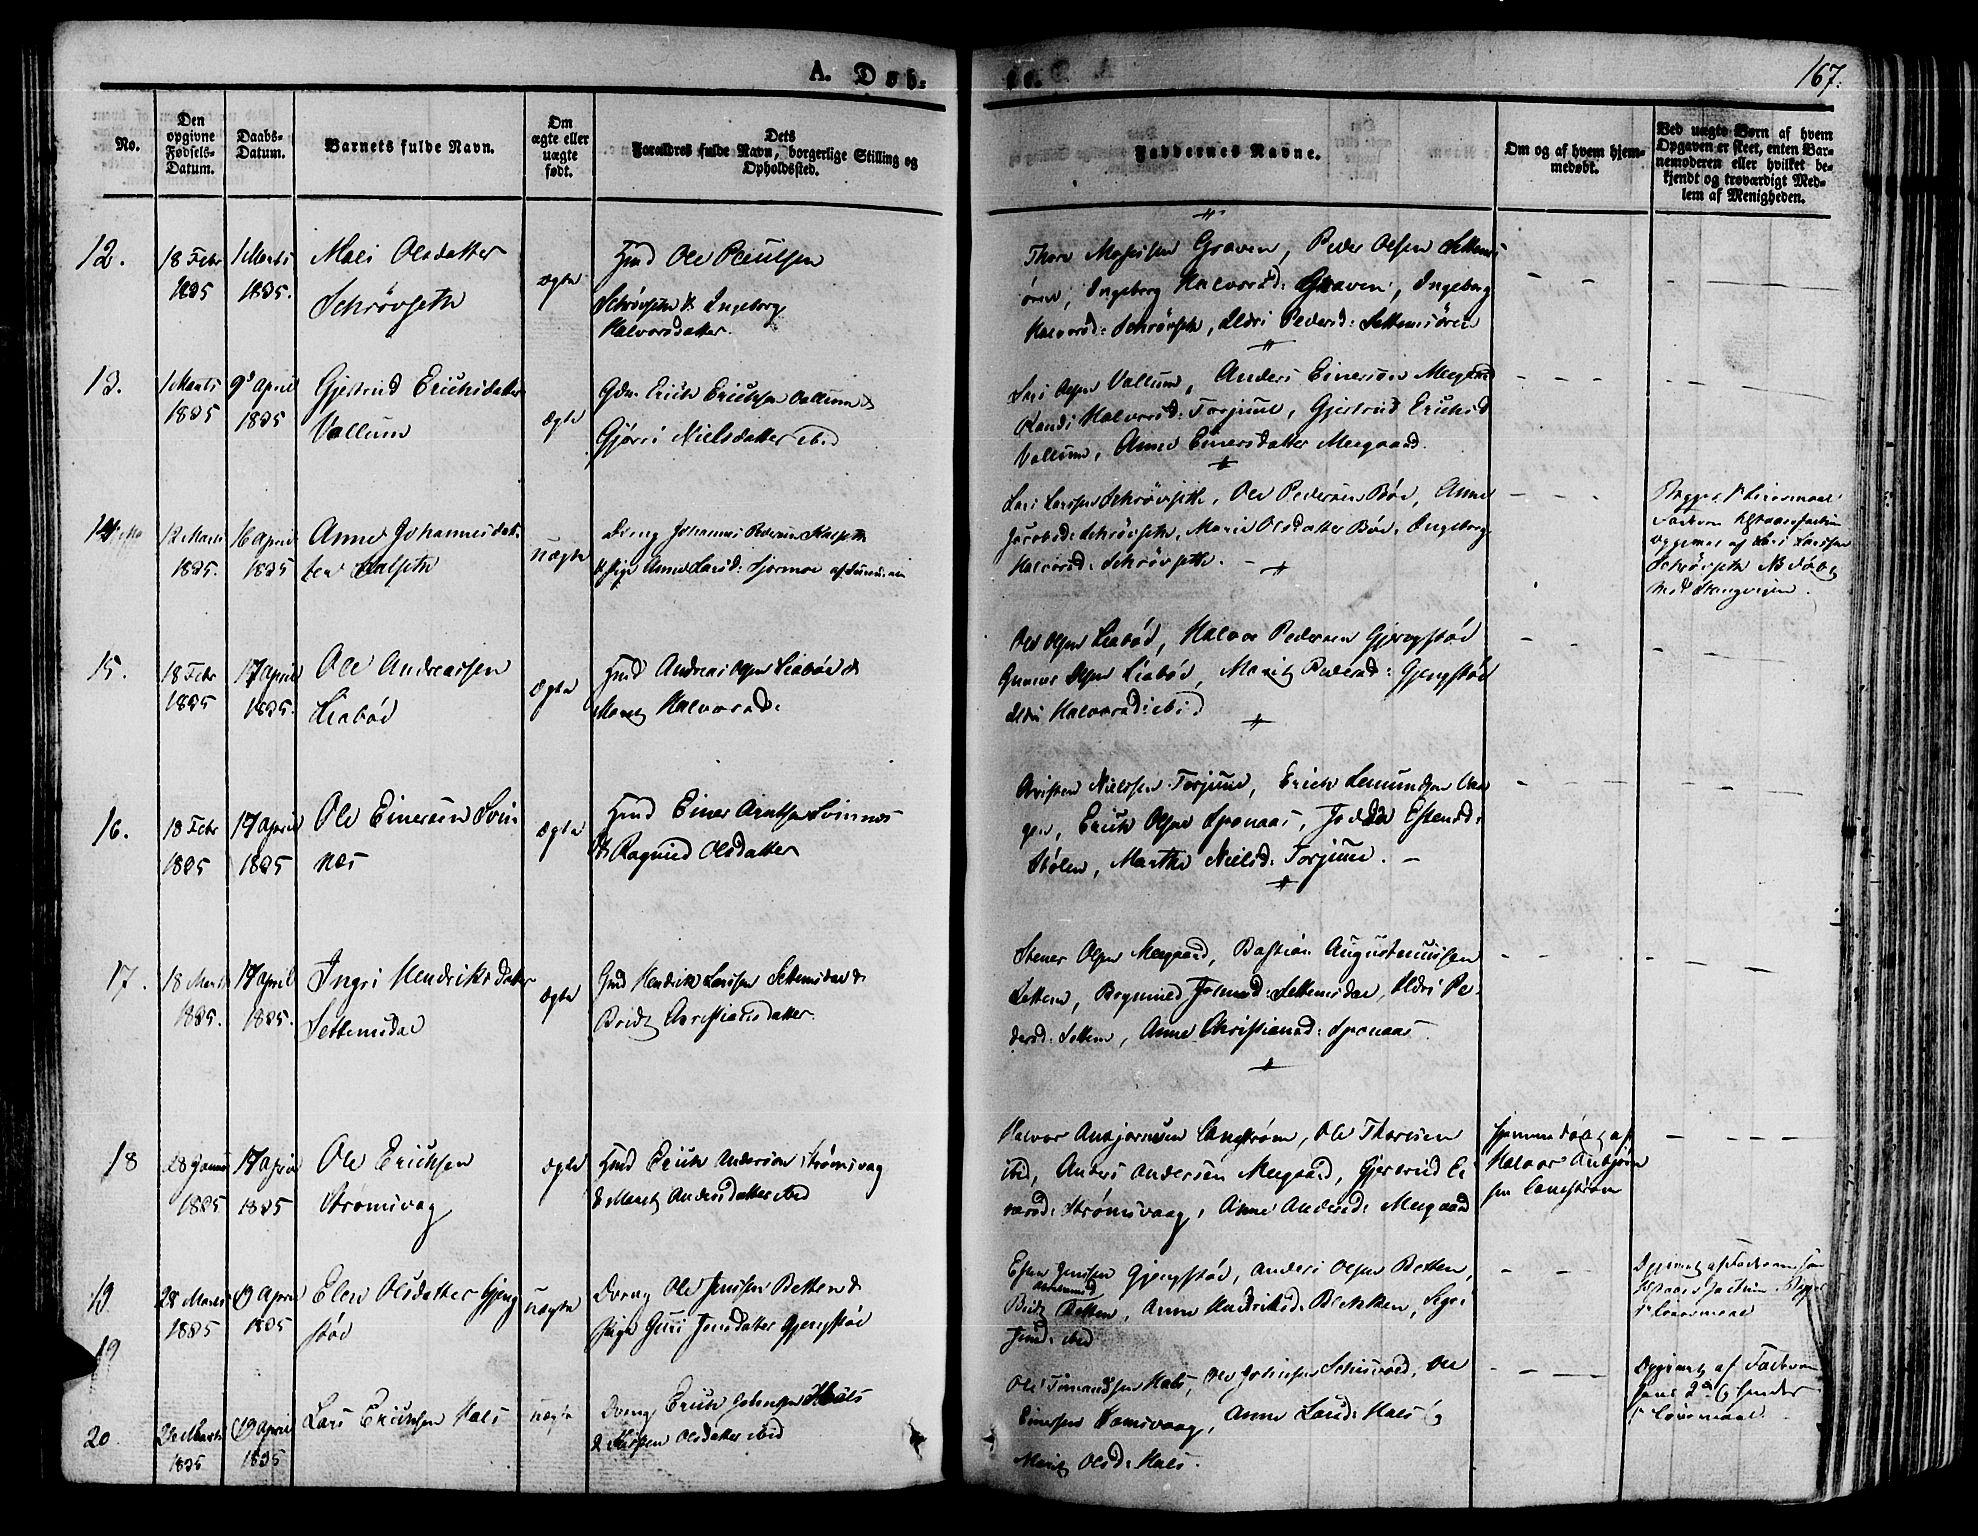 A. Døb-
te.
167.
No.
Den opgivne Fødsels-Datum.
Daabs-Datum.
Barnets fulde Navn.
Om ægte eller uægte født.
Dets Forældres fulde Navn, borgerlige Stilling og Opholdssted.
Faddernes Navne.
Om og af hvem hjem-
medøbt.
Ved uægte Børn af hvem
Opgaven er skeet, enten Bar-
nemoderen eller hvilket be-
kjendt og troværdigt Med-
lem af Menigheden.
12.
18 Febr
1835
1 Marts
1835.
Mali Olsdatter
Schrövseth
ægte
Gmd Ole
Schrövseth & Ingeborg
Halvorsdatter.
Graven, Peder Olsen Settems
ören, Ingeborg Halvorsd: Graven, Ingeborg
Halvorsd: Schrövseth, Eldri Pedersd: Settemsören
13.
1 Marts
1835
9d April
1835
Gjertrud Erichsdatter
Vallum
ægte
Erich Erichsen Vallum &
Gjöri Nielsdatter ibid
Lars Olsen Vallum, Anders Einersön Meegaard
Randi Halvorsd: Torjuul, Gjertrud Erichsd
Vallum, Anne Einersdatter Meegaard.
14
12 Marts
1835.
16 April
1835
Anne Johannesdat-
ter Halseth
uægte
Dreng Johannes Pedersen Halseth
& Pige Anne Larsd:
Lars Larsen Schrövseth, Ole Pedersen Böe, Anne
Jacobsd: Schrövseth, Marit Olsdatter Böe, Ingeborg
Halvorsd: Schrövseth.
Begges 1ste Leiermaal
Lars Larsen
Schrövseth NB Döbt
ved Stangvigen.
15.
18 Febr
1835
17 April
1835.
Ole Andreassen
Liabød
ægte
Gmd Andreas Olsen Liabød &
Marit Halvorsd:
Ole Olsen Liabød, Halvor Pedersen Gjengstød
Gunner Olsen Liabød, Marit Pedersd: Gjengstød
Eldri Halvorsd: ibid
16.
18 Febr
1835
17 April
1835
Ole Einersen Svin
næs
ægte
Gmd Einer Arntsen Svinnes
& Ragnild Olsdatter
Christen Nielssen Torjuul, Erich
gen, Erich Olsen Sponaas, Estensd:
Stölen, Marthe Nielsd: Torjuul.
17.
18 Marts
1835.
17 April
1835.
Ingri Hendriksdatter
Settemsdal
ægte
Gmd Hendrik Larsen Settemsdal &
Brit Christiansdatter.
Stener Olsen Meegaard, Bastian Augustinussen
Settem, Settemsdal, Eldri Pe-
dersd: Settem, Anne Christiansd: Sponaas
18
28 Januar
1835
17 April
1835
Ole Erichsen
Strømsvag
ægte
Gmd Erich Andersøn Strømsvag
& Marit Andersdatter ibid
Halvor Anbjørnsen Langstrøm, Ole Thoresen
ibid, Anders Andersen Meegaard, Gjertrud Ei
nersd: Strømsvaag, Anne Andersd: Meegaard
hjemmedøbt af
Halvor Anbjørn
sen Langstrøm
19
28 Marts
1835
19 April
1835
Elen Olsdatter Gjeng
stød
uægte
Dreng Ole Jenssen Betten &
Pige Guri Jonsdatter Gjengstød
Esten Jenssen Gjengstød, Anders Olsen Betten,
Brit Betten, Anne Hendriksd: Bekken, Siri
Jensd: ibid
1ste Leiermaal
19
20
1835
19 April
1835
Lars Erichsen Hals
uægte
Dreng Erich Johnsen Hals
& Kirsten Olsdatter ibid
Ole Hals, Ole Johnsen, Ole
Einersen, Anne Larsd: Hals og
Marit Olsd: Hals.
Opgivet af Faderen
Leiermaal